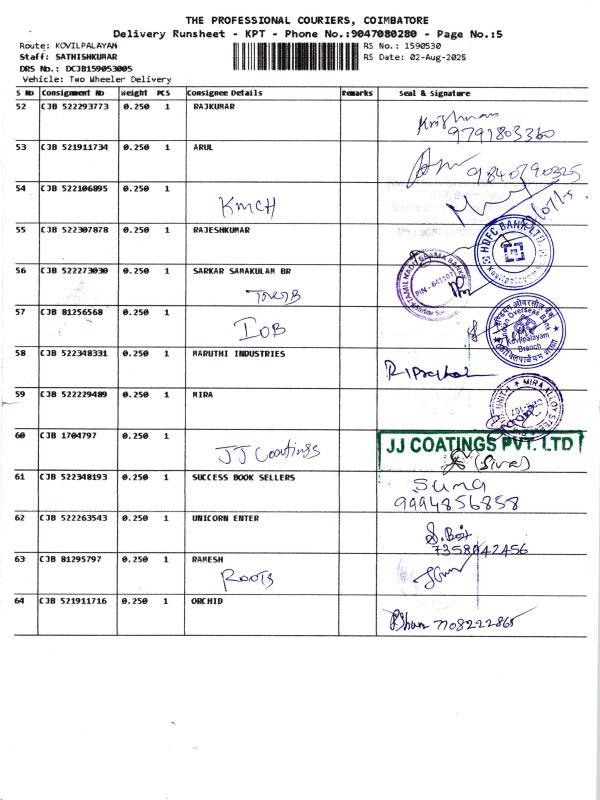 THE PROFESSIONAL COURIERS, COIMBATORE
Delivery Runsheet - KPT - Phone No.:9047080280 - Page No.:5
Route: KOVILPALAYAN
RS No.: 1590530
Staff: SATHISHKUMAR
RS Date: 02-Aug-2025
DRS No.: DCJB159053005
Vehicle: Two Wheeler Delivery
S No Consignment No Weight PCS Consignee Details Remarks Seal & signature
52 CJB 522293773 0.250 1 RAJKUMAR
9791803360
53 CJB 521911734 0.250 1 ARUL
9840790325
54 CJB 522106895 0.250 1
KMCH
55 CJB 522307878 0.250 1 RAJESHKUMAR
HDFC BANK LTD.
56 CJB 522273030 0.250 1 SARKAR SAMAKULAM BR
TAMIL NADU GRAMA BANK
PIN - 641107
57 CJB 81256568 0.250 1
IOB
Indian Overseas Bank
Kovilpalayam
Branch
58 CJB 522348331 0.250 1 MARUTHI INDUSTRIES
59 CJB 522229489 0.250 1 MIRA
MIRA ALLOY STEELS
60 CJB 1704797 0.250 1
JJ Coatings
JJ COATINGS PVT. LTD
(Siva)
61 CJB 522348193 0.250 1 SUCCESS BOOK SELLERS
Suma
9994856858
62 CJB 522263543 0.250 1 UNICORN ENTER
7358042456
63 CJB 81295797 0.250 1 RAMESH
ROOTS
64 CJB 521911716 0.250 1 ORCHID
7708222865